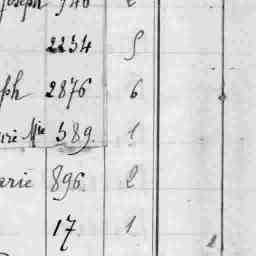 Joseph 746 2
2234 5
ph 2876 6
Mie 389. 1
arie 896 2
17 1